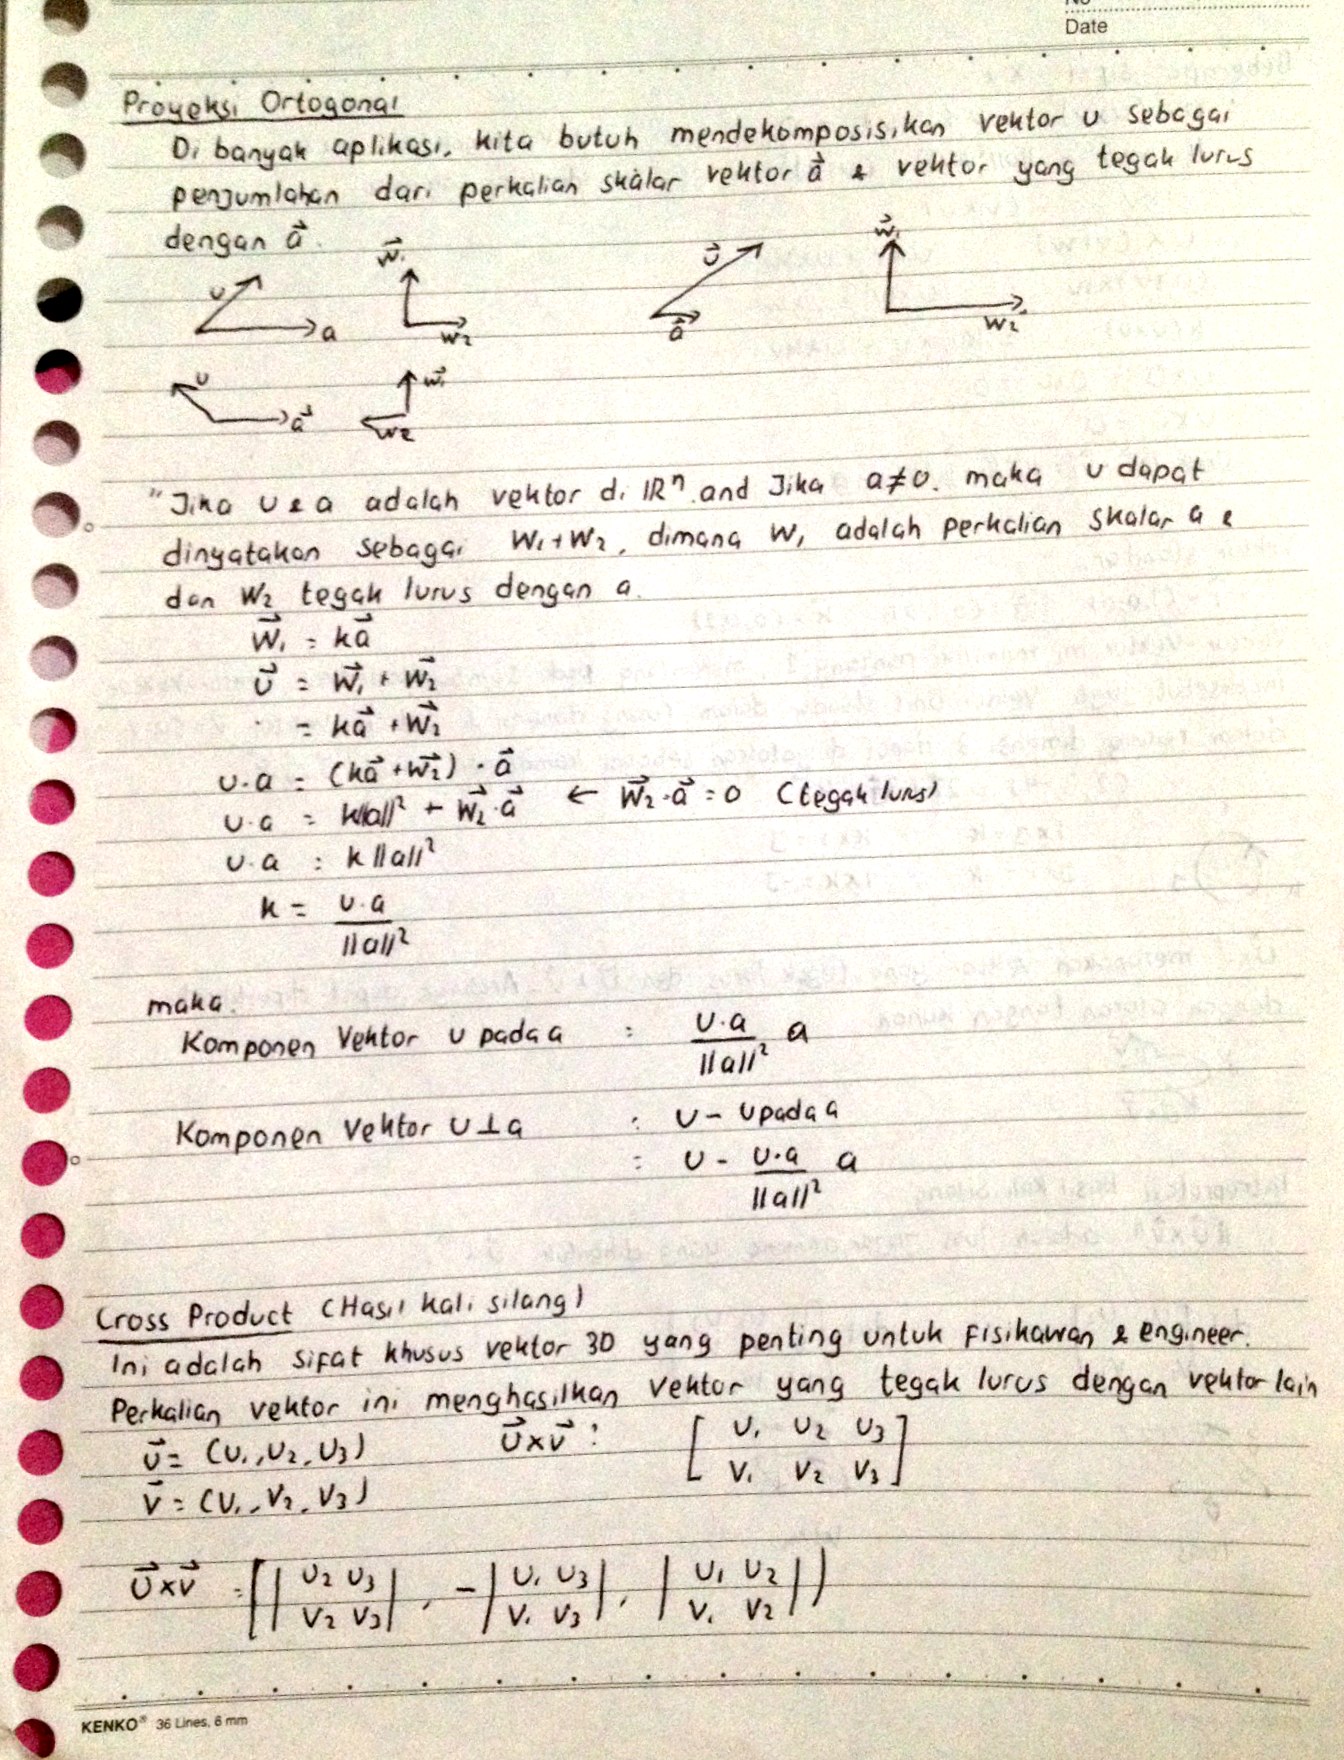 No
Date
Proyeksi Ortogonal
Di banyak aplikasi, kita butuh mendekomposisikan vektor u sebagai
penjumlahan dari perkalian skalar vektor a⃗ & vektor yang tegak lurus
dengan a⃗.
u a w⃗₁ w₂ u⃗ a⃗ w⃗₁ w₂
u a⃗ w⃗₁ w₂
"Jika u & a adalah vektor di ℝⁿ, and Jika a≠0, maka u dapat
dinyatakan sebagai w₁+w₂, dimana w₁ adalah perkalian skalar a &
dan w₂ tegak lurus dengan a.
w⃗₁ = ka⃗
u⃗ = w⃗₁ + w⃗₂
= ka⃗ + w⃗₂
u·a = (ka⃗ + w⃗₂) · a⃗
u·a = k||a||² + w⃗₂·a⃗ ← w⃗₂·a⃗ = 0 (tegak lurus)
u·a = k ||a||²
k = u·a / ||a||²
maka,
Komponen Vektor u pada a = u·a / ||a||² a
Komponen Vektor u⊥a = u - u pada a
= u - u·a / ||a||² a
Cross Product (Hasil kali silang)
Ini adalah sifat khusus vektor 3D yang penting untuk fisikawan & engineer.
Perkalian vektor ini menghasilkan vektor yang tegak lurus dengan vektor lain
u⃗ = (u₁, u₂, u₃) u⃗×v⃗ : [ u₁ u₂ u₃
v⃗ = (v₁, v₂, v₃) v₁ v₂ v₃ ]
u⃗×v⃗ = ( | u₂ u₃ | , - | u₁ u₃ | , | u₁ u₂ | )
v₂ v₃ v₁ v₃ v₁ v₂
KENKO® 36 Lines, 6 mm